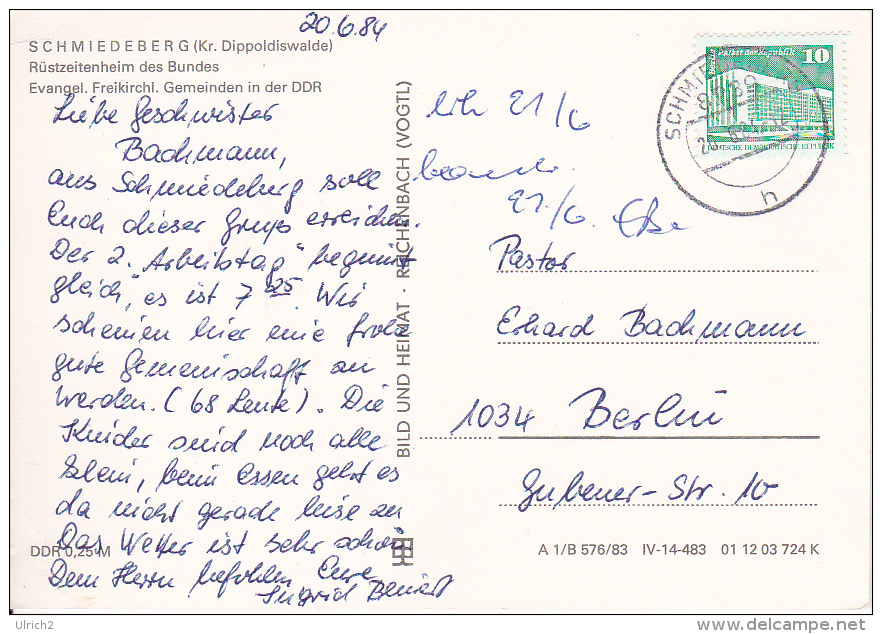 20.6.84
SCHMIEDEBERG (Kr. Dippoldiswalde)
Rüstzeitenheim des Bundes
Evangel. Freikirchl. Gemeinden in der DDR
Liebe Geschwister
Bachmann,
aus Schmiedeberg soll
Euch dieser Gruß erreichen.
Der 2. „Arbeitstag" beginnt
gleich, es ist 7 25. Wir
scheinen hier eine frohe
gute Gemeinschaft zu
werden. (68 Leute). Die
Kinder sind noch alle
klein, beim Essen geht es
da nicht gerade leise zu
Das Wetter ist sehr schön
Dem Herrn befohlen Eure
Ingrid
DDR 0,25 M
BILD UND HEIMAT · REICHENBACH (VOGTL)
21/6
21/6
Palast der Republik
10
DEUTSCHE DEMOKRATISCHE REPUBLIK
h
Pastor
Erhard Bachmann
1034 Berlin
Gubener-Str. 10
A 1/B 576/83 IV-14-483 01 12 03 724 K
www.delcampe.net
Ulrich2